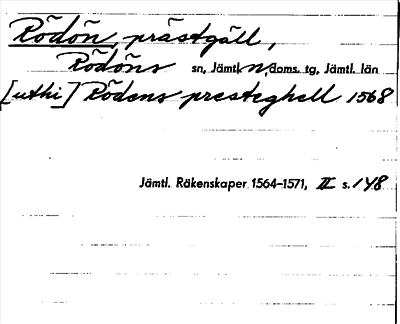 Rödön, prästgäll,
Rödöns sn, Jämtl. n. doms. tg, Jämtl. län
[uthi] Rödens presteghell 1568
Jämtl. Räkenskaper 1564-1571, II s. 148